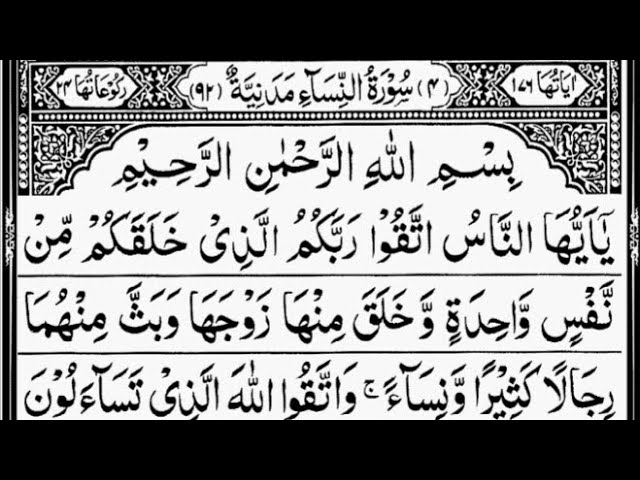 اٰيَاتُهَا ١٧٦ (٤) سُوْرَةُ النِّسَآءِ مَدَنِيَّةٌ (٩٢) رُكُوْعَاتُهَا ٢٤
بِسْمِ اللهِ الرَّحْمٰنِ الرَّحِيْمِ
يٰۤاَيُّهَا النَّاسُ اتَّقُوْا رَبَّكُمُ الَّذِيْ خَلَقَكُمْ مِّنْ
نَّفْسٍ وَّاحِدَةٍ وَّخَلَقَ مِنْهَا زَوْجَهَا وَبَثَّ مِنْهُمَا
رِجَالًا كَثِيْرًا وَّنِسَآءً ۚ وَاتَّقُوا اللهَ الَّذِيْ تَسَآءَلُوْنَ